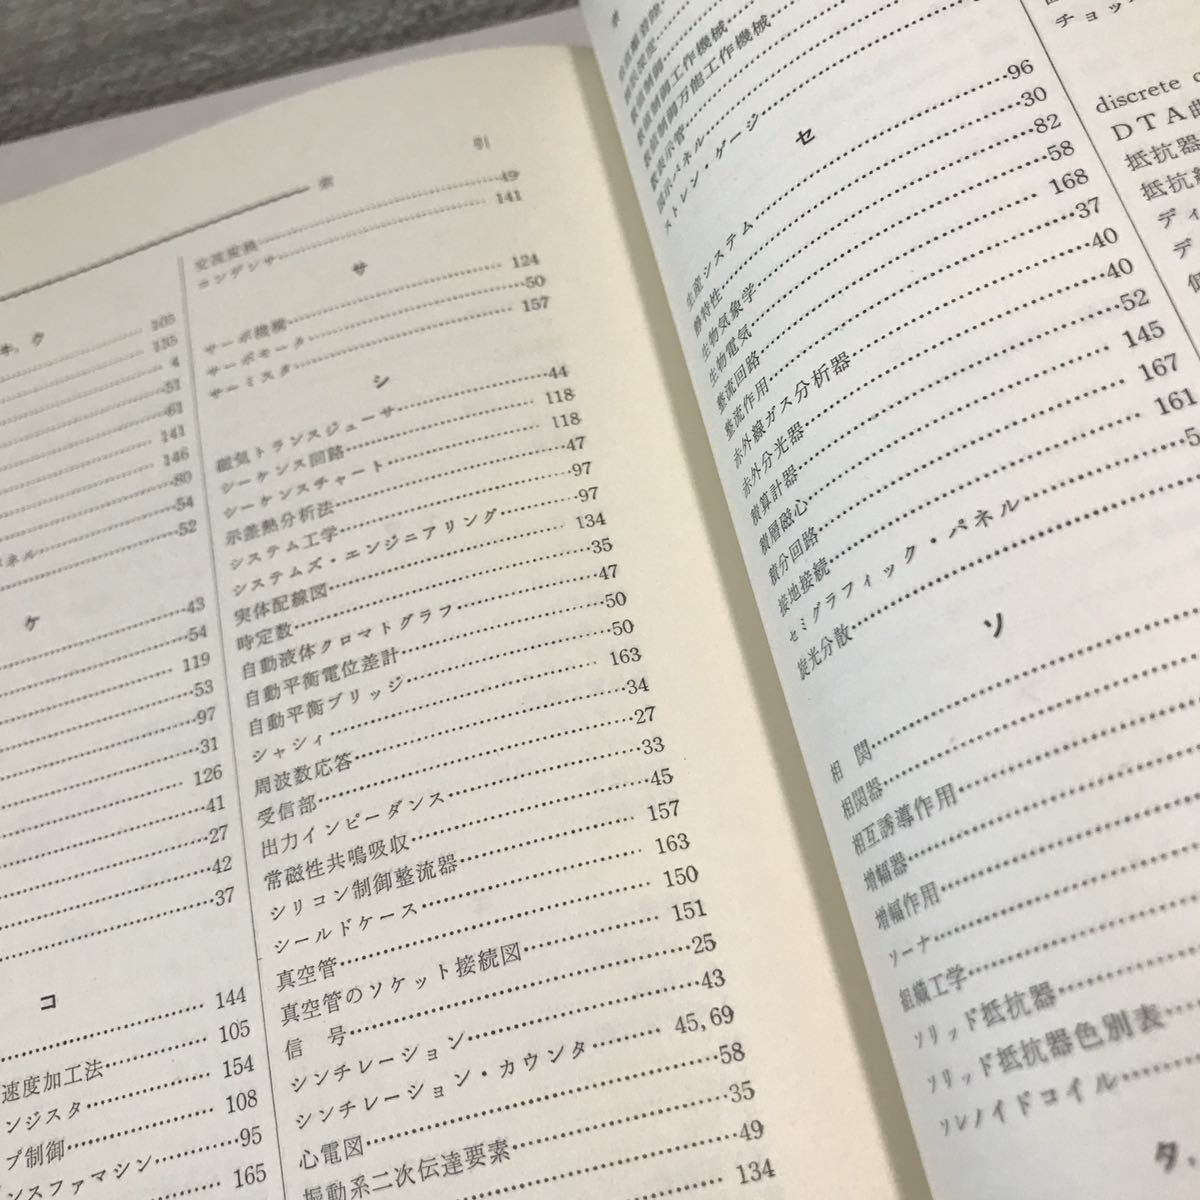 引
索
キ, ク
105
4
51
61
141
146
80
54
ネル 52
ケ
43
54
119
53
97
31
126
41
27
42
37
コ
144
速度加工法 105
ンジスタ 154
プ制御 108
ンスファマシン 95
165
交流変換 49
コンデンサ 141
サ
サーボ機構 124
サーボモータ 50
サーミスタ 157
シ
磁気トランスジューサ 44
シーケンス回路 118
シーケンスチャート 118
示差熱分析法 47
システム工学 97
システムズ・エンジニアリング 97
実体配線図 134
時定数 35
自動液体クロマトグラフ 47
自動平衡電位差計 50
自動平衡ブリッジ 50
シャシィ 163
周波数応答 34
受信部 27
出力インピーダンス 33
常磁性共鳴吸収 45
シリコン制御整流器 157
シールドケース 163
真空管 150
真空管のソケット接続図 151
信 号 25
シンチレーション 43
シンチレーション・カウンタ 45, 69
心電図 58
振動系二次伝達要素 35
49
134
数値制御工作機械
数値制御万能工作機械
数表示管
図示パネル
ストレン・ゲージ
セ
生産システム 96
静特性 30
生物気象学 82
生物電気 58
整流回路 168
整流作用 37
赤外線ガス分析器 40
赤外分光器 40
積算計器 52
積層磁心 145
積分回路 167
接地接続 161
セミグラフィック・パネル 5
旋光分散
ソ
相 関
相関器
相互誘導作用
増幅器
増幅作用
ソーナ
組織工学
ソリッド抵抗器
ソリッド抵抗器色別表
ソレノイドコイル
タ,
チョッパ
discrete c
DTA曲
抵抗器
抵抗
ディ
デ